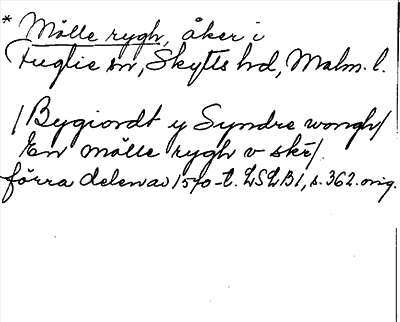 * Mölle rygh, åker i
Fuglie sn, Skytts hd, Malm. l.
/Bygiordt y Syndre wongh/
En mölle rygh v skr/.
förra delen av 1570-t. LSLB1, s. 362. orig.